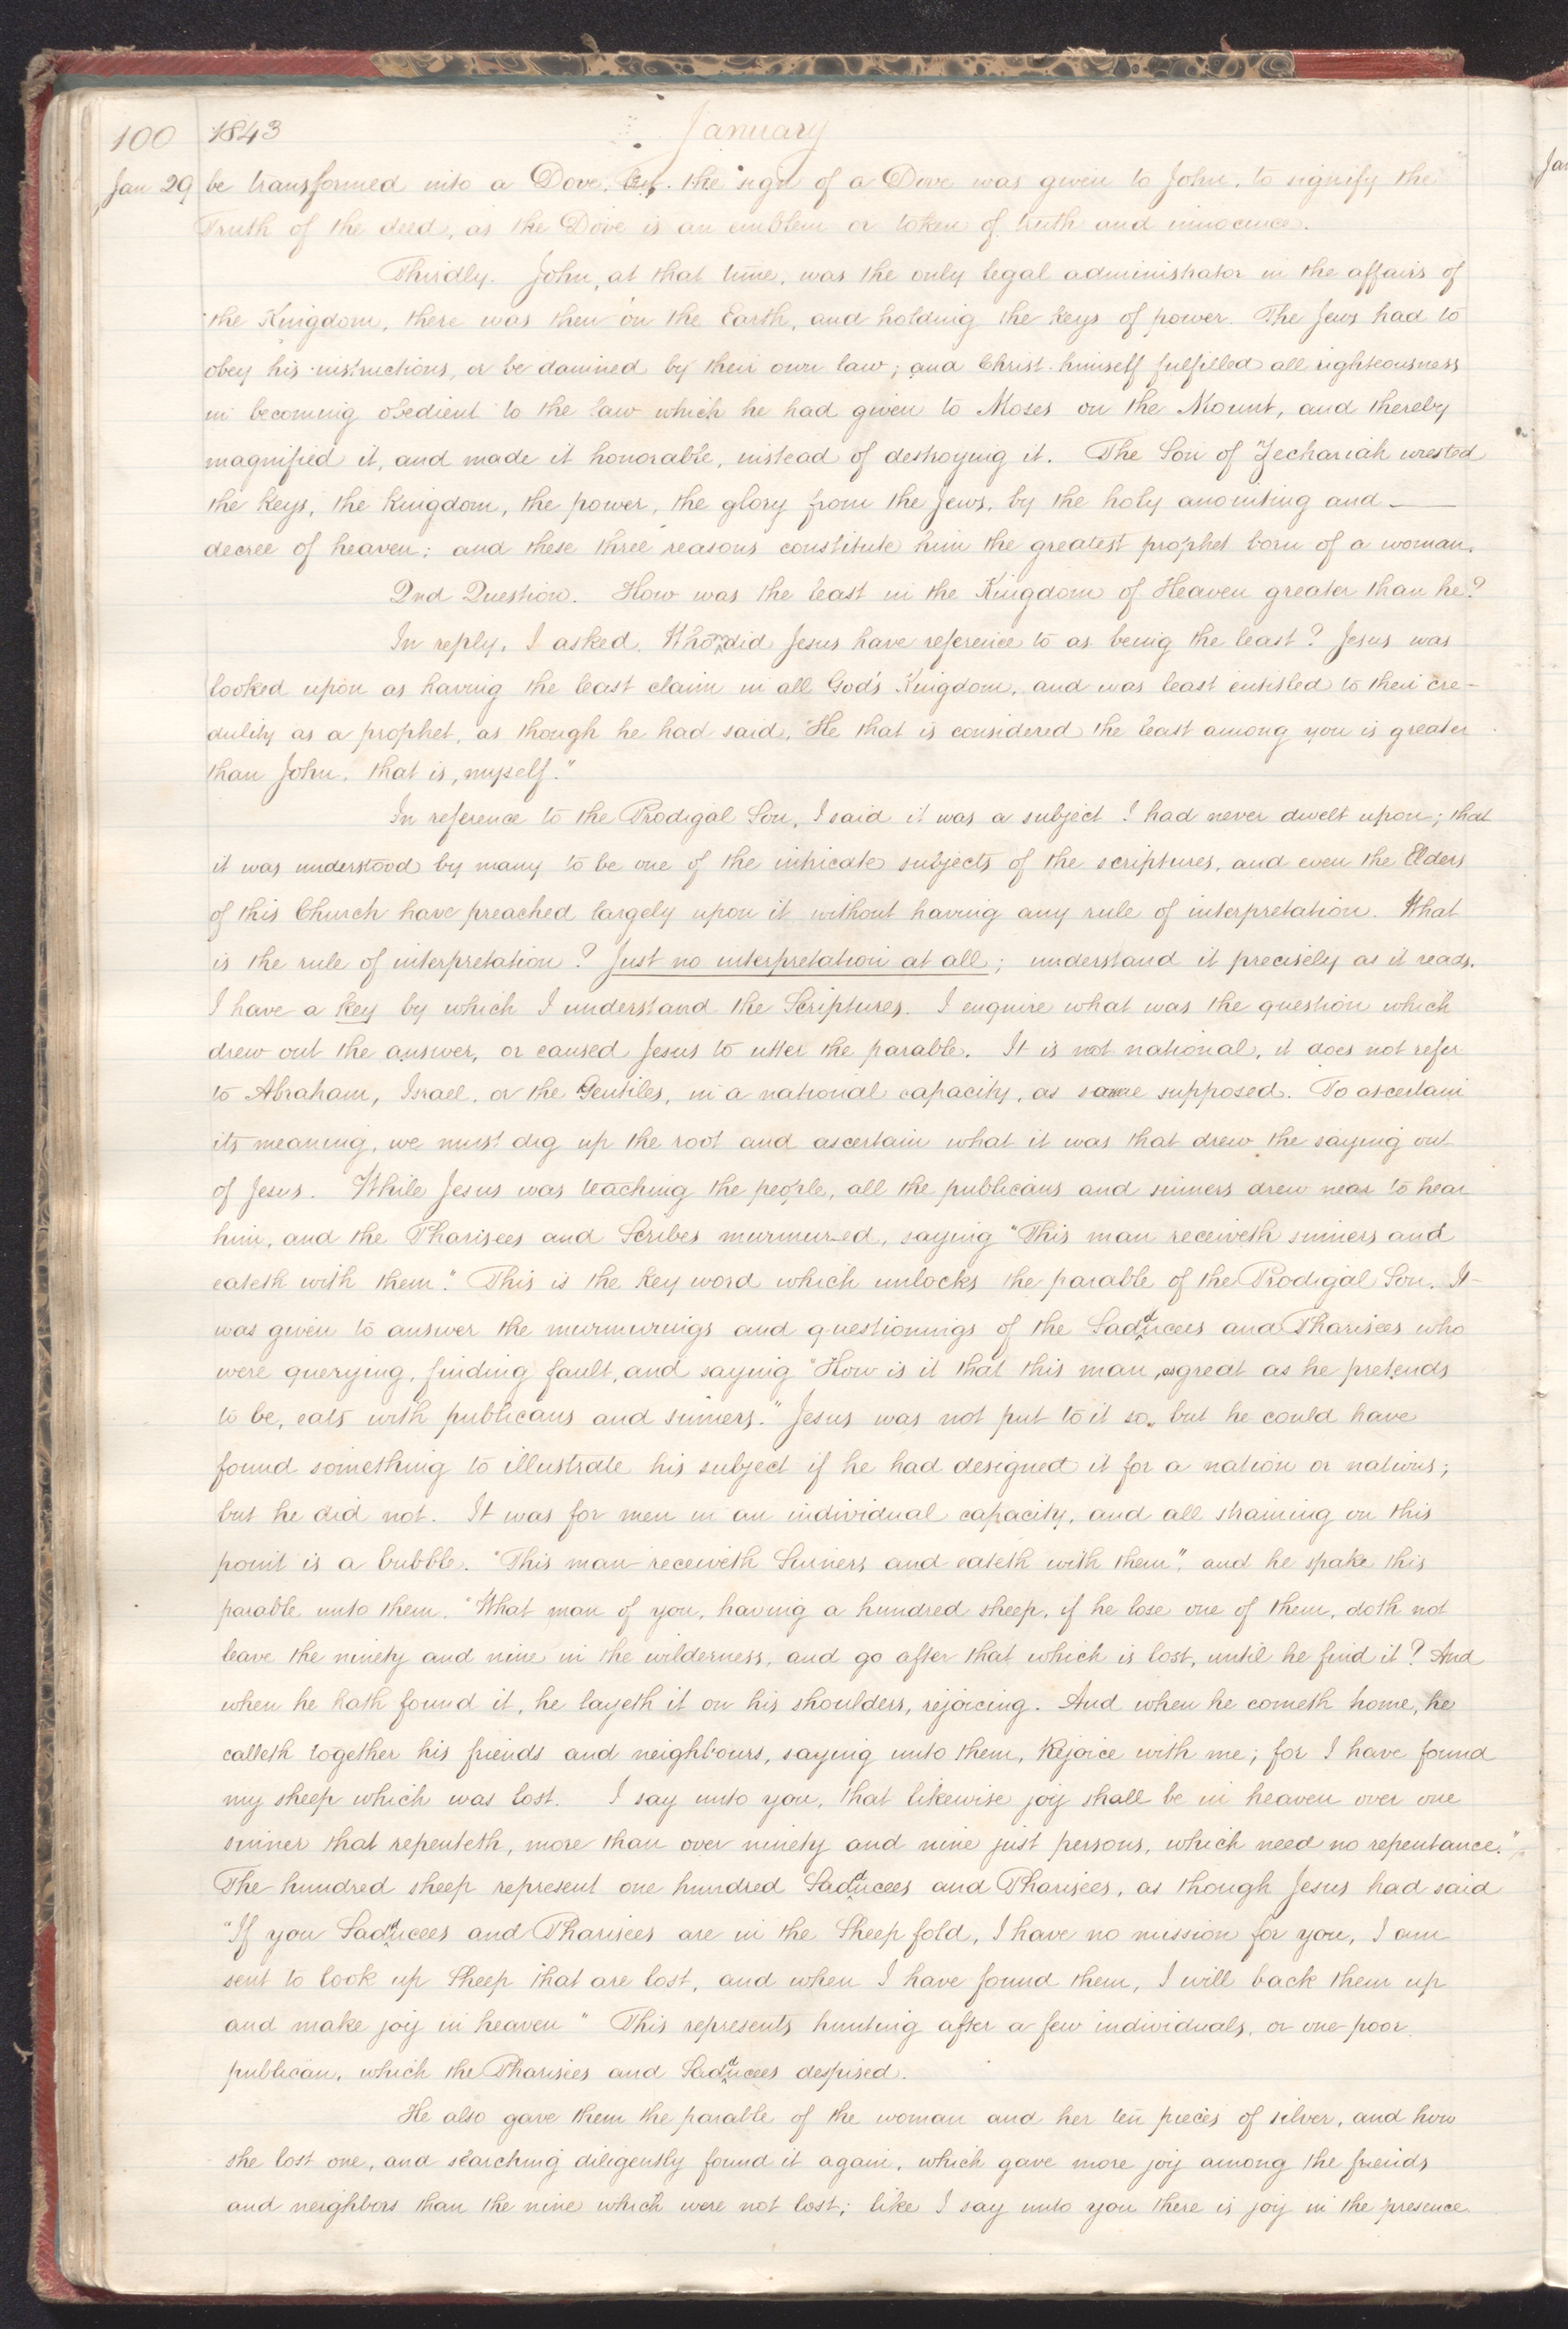 100 1843 January
Jan 29 be transformed into a Dove, but the sign of a Dove was given to John, to signify the
Truth of the deed, as the Dove is an emblem or token of truth and innocence.
Thirdly. John, at that time, was the only legal administrator in the affairs of
the Kingdom, there was then on the Earth, and holding the keys of power. The Jews had to
obey his instructions, or be damned by their own law; and Christ himself fulfilled all righteousness
in becoming obedient to the law which he had given to Moses on the Mount, and thereby
magnified it, and made it honorable, instead of destroying it. The Son of Zechariah wrested
the keys, the kingdom, the power, the glory from the Jews, by the holy anointing and —
decree of heaven; and these three reasons constitute him the greatest prophet born of a woman.
2nd Question. How was the least in the Kingdom of Heaven greater than he?
In reply, I asked. Whom did Jesus have reference to as being the least? Jesus was
looked upon as having the least claim in all God's Kingdom, and was least entitled to their cre-
dulity as a prophet, as though he had said, "He that is considered the least among you is greater
than John, that is, myself."
In reference to the Prodigal Son, I said it was a subject I had never dwelt upon; that
it was understood by many to be one of the intricate subjects of the scriptures, and even the Elders
of this Church have preached largely upon it without having any rule of interpretation. What
is the rule of interpretation? Just no interpretation at all; understand it precisely as it reads.
I have a key by which I understand the Scriptures. I enquire what was the question which
drew out the answer, or caused Jesus to utter the parable. It is not national, it does not refer
to Abraham, Israel, or the Gentiles, in a national capacity, as some supposed. To ascertain
its meaning, we must dig up the root and ascertain what it was that drew the saying out
of Jesus. While Jesus was teaching the people, all the publicans and sinners drew near to hear
him, and the Pharisees and Scribes murmured, saying "This man receiveth sinners and
eateth with them." This is the key word which unlocks the parable of the Prodigal Son. It
was given to answer the murmurings and questionings of the Sadducees and Pharisees who
were querying, finding fault, and saying "How is it that this man, as great as he pretends
to be, eats with publicans and sinners." Jesus was not put to it so, but he could have
found something to illustrate his subject if he had designed it for a nation or nations;
but he did not. It was for men in an individual capacity, and all straining on this
point is a bubble. "This man receiveth Sinners and eateth with them", and he spake this
parable unto them. "What man of you, having a hundred sheep, if he lose one of them, doth not
leave the ninety and nine in the wilderness, and go after that which is lost, until he find it? And
when he hath found it, he layeth it on his shoulders, rejoicing. And when he cometh home, he
calleth together his friends and neighbours, saying unto them, Rejoice with me; for I have found
my sheep which was lost. I say unto you, that likewise joy shall be in heaven over one
sinner that repenteth, more than over ninety and nine just persons, which need no repentance."
The hundred sheep represent one hundred Sadducees and Pharisees, as though Jesus had said
"If you Sadducees and Pharisees are in the Sheep fold, I have no mission for you, I am
sent to look up Sheep that are lost, and when I have found them, I will back them up
and make joy in heaven" This represents hunting after a few individuals, or one poor
publican, which the Pharisees and Sadducees despised.
He also gave them the parable of the woman and her ten pieces of silver, and how
she lost one, and searching diligently found it again, which gave more joy among the friends
and neighbors than the nine which were not lost; like I say unto you there is joy in the presence